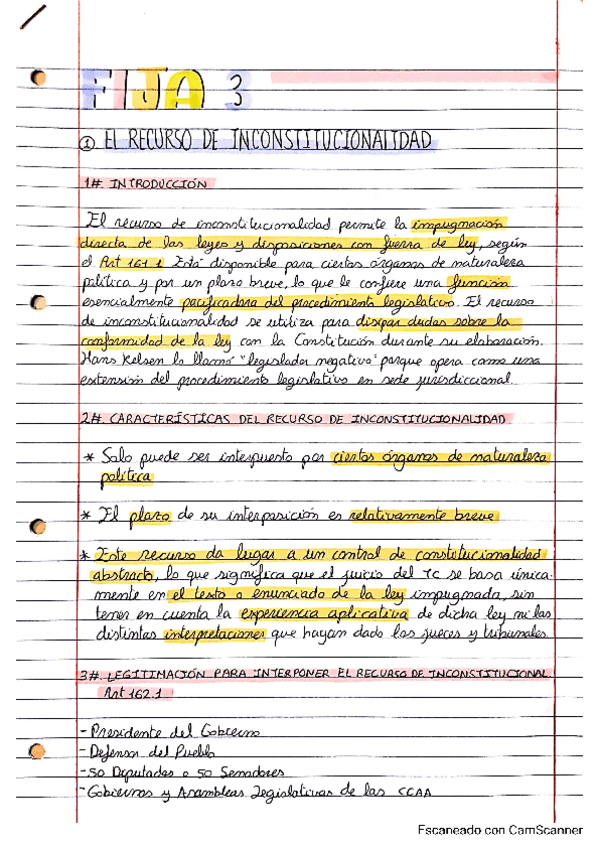 FIJA 3
① EL RECURSO DE INCONSTITUCIONALIDAD
1#. INTRODUCCIÓN
El recurso de inconstitucionalidad permite la impugnación
directa de las leyes y disposiciones con fuerza de ley, según
el Art 161.1. Está disponible para ciertos órganos de naturaleza
política y por un plazo breve, lo que le confiere una función
esencialmente pacificadora del procedimiento legislativo. El recurso
de inconstitucionalidad se utiliza para disipar dudas sobre la
conformidad de la ley con la Constitución durante su elaboración.
Hans Kelsen lo llamó "legislador negativo" porque opera como una
extensión del procedimiento legislativo en sede jurisdiccional.
2#. CARACTERÍSTICAS DEL RECURSO DE INCONSTITUCIONALIDAD
* Solo puede ser interpuesto por ciertos órganos de naturaleza
política
* El plazo de su interposición es relativamente breve
* Este recurso da lugar a un control de constitucionalidad
abstracto, lo que significa que el juicio del TC se basa única-
mente en el texto o enunciado de la ley impugnada, sin
tener en cuenta la experiencia aplicativa de dicha ley ni las
distintas interpretaciones que hayan dado los jueces y tribunales.
3#. LEGITIMACIÓN PARA INTERPONER EL RECURSO DE INCONSTITUCIONAL.
Art 162.1
- Presidente del Gobierno
- Defensor del Pueblo
- 50 Diputados o 50 Senadores
- Gobiernos y Asambleas Legislativas de las CCAA
Escaneado con CamScanner